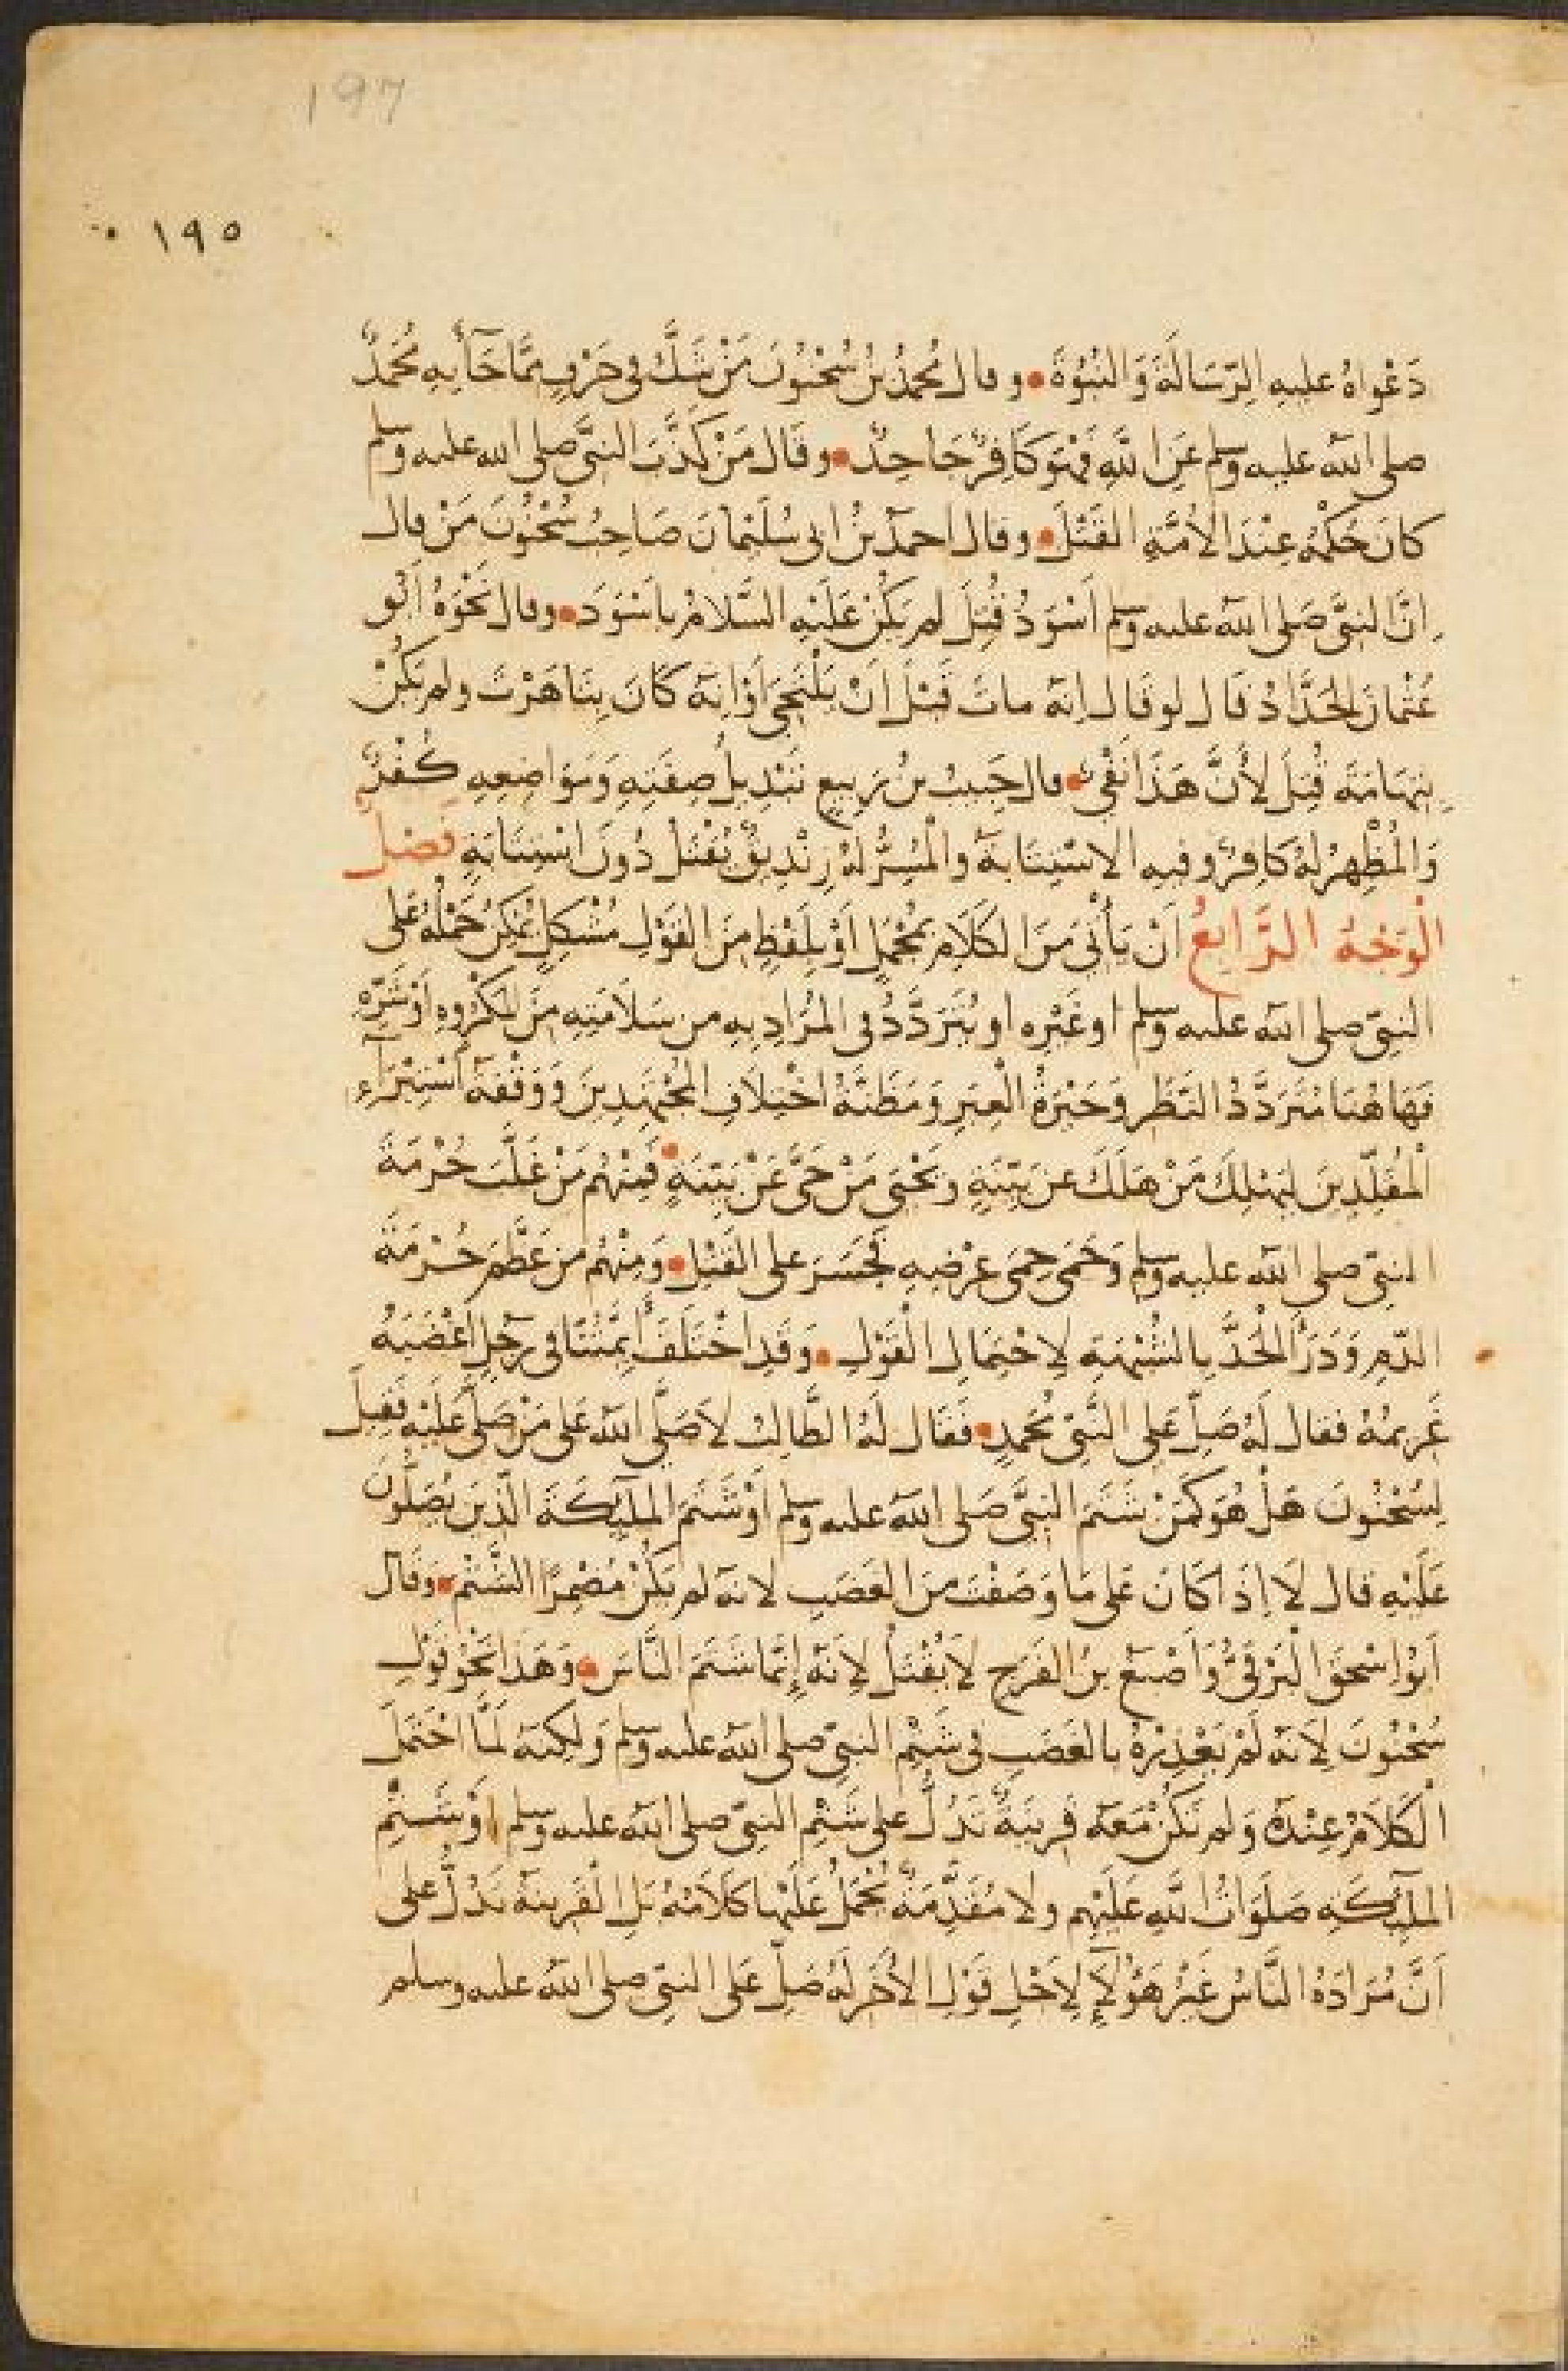 197
١٩٥
دَعْواهُ عليهِ الرّسَالَةَ وَالنُّبُوّةَ • وقال مُحمدُ بنُ سُحْنُونَ مَنْ شَكَّ فى حَرْفٍ مِمَّا جَآءَ بِهِ مُحَمَّدٌ
صلى اللهُ عليه وسلم عَنِ اللَّهِ فَهْوَ كَافِرٌ جَاحِدٌ • وقَالَ مَنْ كَذَّبَ النبيَّ صلى الله عليه وسلم
كانَ حُكْمُهُ عِنْدَ الأُمَّةِ القَتْلَ • وقال احمدُ بنُ ابى سُلَيْمَانَ صَاحِبُ سُحْنُونَ مَنْ قال
اِنَّ النبيَّ صَلى اللهُ عليه وسلم أسْوَدُ قُتِلَ لم يَكُنْ عَلَيْهِ السَّلامُ باَسْوَدَ • وقال نَحْوَهُ اَبُو
عُثْمانَ الحَدَّادُ قال لو قَالَ اِنّهُ ماتَ قَبْلَ اَنْ يَلْتَحِيَ اَوْ اِنّهُ كَانَ بِتَاهَرْتَ ولم يَكُنْ
بِتِهَامَةَ قُتِلَ لأَنَّ هَذَا نَفْيٌ • قال حَبيبُ بنُ رَبِيعٍ تَبْدِيلُ صِفَتِهِ وَمَوَاضِعِهِ كُفْرٌ
وَالمُظْهِرُ لهُ كَافِرٌ وفيهِ الاسْتِتَابَةُ والْمُسِرُّ لهُ زِنْدِيقٌ يُقْتَلُ دُونَ اسْتِتَابَةٍ فَصْلٌ
الْوَجْهُ الرَّابِعُ اَنْ يَأْتىَ مِنَ الكَلَامِ بمُجْمَلٍ اَوْ بِلَفْظٍ مِنَ القَوْلِ مُشْكِلٍ يُمْكِنُ حَمْلُهُ عَلى
النبىّ صلى الله عليه وسلم او غَيْرِهِ او يُتَرَدَّدُ فى المُرَادِ بِهِ من سَلَامَتِهِ مِنَ المَكْرُوهِ اَوْ شَرِّهِ
فَهَاهُنَا مُتَرَدَّدُ النَّظَرِ وَحَيْرَةُ الْعِبَرِ وَمَظَنَّةُ اخْتِلاَفِ المُجْتَهِدِينَ وَوَقْفَةُ اسْتِبْرَآءِ
الْمُقَلِّدِينَ لِيَهْلِكَ مَنْ هَلَكَ عن بَيِّنَةٍ وَيَحْيَى مَنْ حَىَّ عَنْ بَيّنَةٍ • فَمِنْهُم مَنْ غَلَّبَ حُرْمَةَ
النبىّ صلى الله عليه وسلم وَحَمَى حِمَى عِرْضِهِ فَجَسَرَ على القَتْلِ • وَمِنْهُم من عَظَّمَ حُرْمَةَ
الدّمِ وَدَرَأَ الْحَدَّ بِالشُّبْهَةِ لاِحْتِمَالِ القَوْلِ • وَقَدِ اخْتَلَفَ أَيِمَّتُنَا فى رَجُلٍ اَغْضَبَهُ
غَرِيمُهُ فقال لَهُ صَلِّ عَلى النَّبِىّ مُحَمدٍ • فَقَال لَهُ الطَّالِبُ لاَ صَلَّى اللهُ عَلى مَنْ صَلَّى عَلَيْهِ فَقِيلَ
لِسُحْنُونَ هَلْ هُوَ كَمَنْ شَتَمَ النبىَّ صَلى اللهُ عليه وسلم اَوْ شَتَمَ المَلَئِكَةَ الَّذِينَ يُصَلُّونَ
عَلَيْهِ قال لَا اِذَا كَانَ عَلى مَا وَصَفْتَ مِنَ الغَضَبِ لانهُ لم يَكُنْ مُضْمِرًا الشَّتْمَ • وَقَال
اَبُو اسْحَقَ الْبَرْقىُّ وَاَصْبَغُ بنُ الفَرَجِ لاَ يُقْتَلُ لِانهُ إِنَّمَا شَتَمَ النَّاسَ • وَهَذَا نَحْوُ قَوْلِ
سُحْنُونَ لِاَنهُ لَمْ يَعْذِرْهُ بالغَضَبِ فى شَتْمِ النبىّ صلى اللهُ عليه وسلم وَلكِنهُ لَمَّا احْتَمَلَ
الْكَلَامُ عِنْدَهُ وَلم تَكُنْ مَعَهُ قَرِينَةٌ تَدُلُّ على شَتْمِ النبىّ صلى اللهُ عليه وسلم اوْ شَتْمِ
المَلَئِكَةِ صَلَوَاتُ اللَّهِ عَلَيْهِم ولا مُقَدِّمَةٌ يُحْمَلُ عَلَيْهَا كَلَامُهُ بَلِ الْقَرِينَةُ تَدُلُّ على
اَنَّ مُرَادَهُ النَّاسُ غَيْرُ هَؤُلآءِ لِاَجْلِ قَوْلِ الأَخَرِ لَهُ صَلِّ عَلى النبىّ صلى اللهُ عليه وسلم